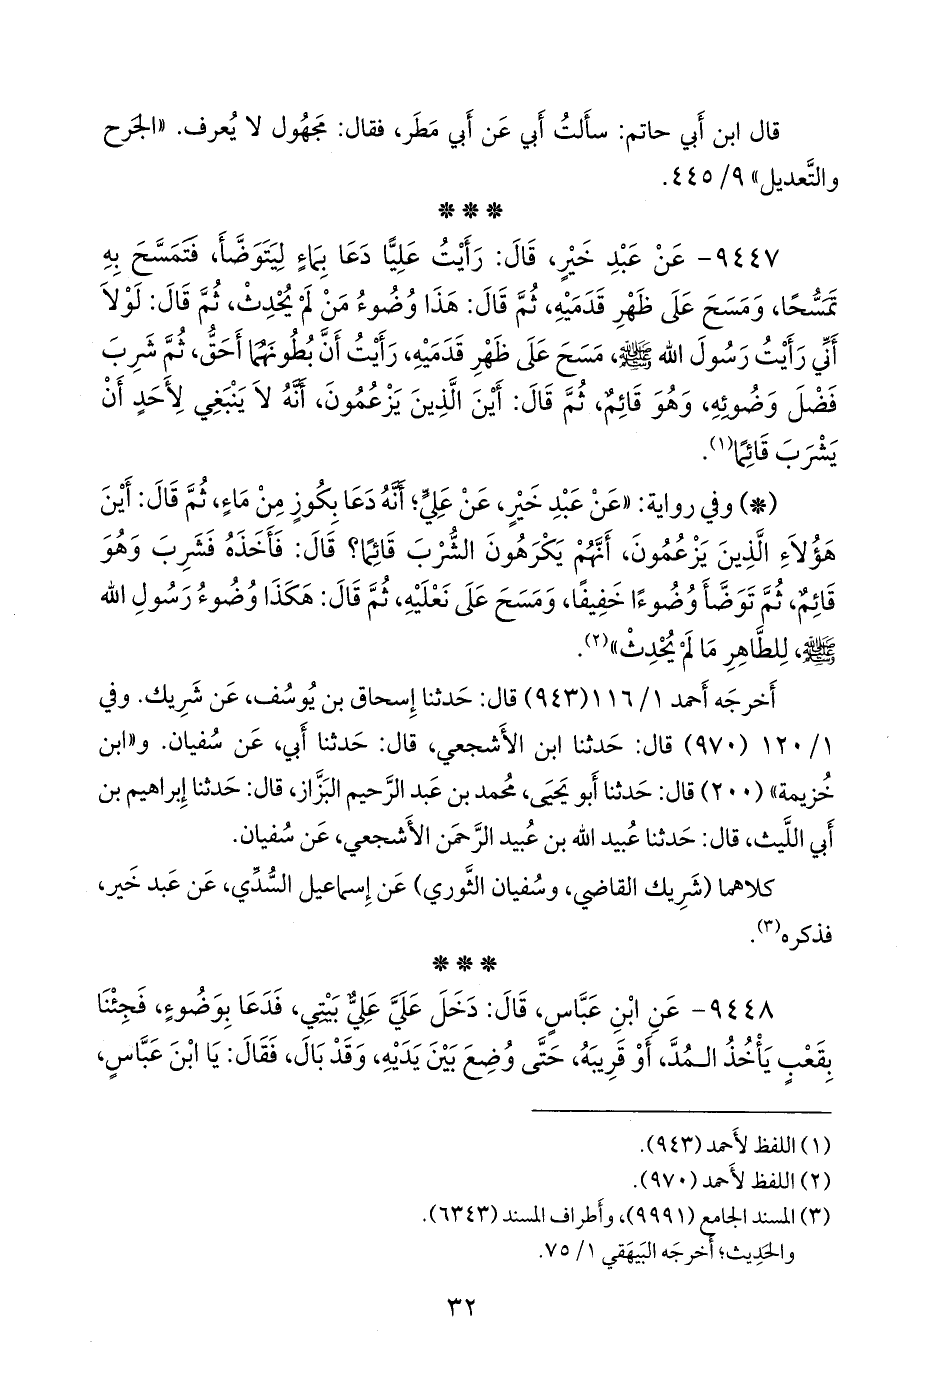 قال ابن أَبي حاتم: سأَلتُ أَبي عَن أَبي مَطَر، فقال: مَجهُول لا يُعرف. «الجَرح
والتَّعديل» ٩/ ٤٤٥.
* * *
٩٤٤٧- عَنْ عَبْدِ خَيْرٍ، قَالَ: رَأَيْتُ عَلِيًّا دَعَا بِمَاءٍ لِيَتَوَضَّأَ، فَتَمَسَّحَ بِهِ
تَمَسُّحًا، وَمَسَحَ عَلَى ظَهْرِ قَدَمَيْهِ، ثُمَّ قَالَ: هَذَا وُضُوءُ مَنْ لَمْ يُحْدِثْ، ثُمَّ قَالَ: لَوْلاَ
أَنِّي رَأَيْتُ رَسُولَ الله ﷺ، مَسَحَ عَلَى ظَهْرِ قَدَمَيْهِ، رَأَيْتُ أَنَّ بُطُونَهُمَا أَحَقُّ، ثُمَّ شَرِبَ
فَضْلَ وَضُوئِهِ، وَهُوَ قَائِمٌ، ثُمَّ قَالَ: أَيْنَ الَّذِينَ يَزْعُمُونَ، أَنَّهُ لاَ يَنْبَغِي لِأَحَدٍ أَنْ
يَشْرَبَ قَائِمًا(١).
(*) وفي رواية: «عَنْ عَبْدِ خَيْرٍ، عَنْ عَلِيٍّ؛ أَنَّهُ دَعَا بِكُوزٍ مِنْ مَاءٍ، ثُمَّ قَالَ: أَيْنَ
هَؤُلَاءِ الَّذِينَ يَزْعُمُونَ، أَنَّهُمْ يَكْرَهُونَ الشُّرْبَ قَائِمًا؟ قَالَ: فَأَخَذَهُ فَشَرِبَ وَهُوَ
قَائِمٌ، ثُمَّ تَوَضَّأَ وُضُوءًا خَفِيفًا، وَمَسَحَ عَلَى نَعْلَيْهِ، ثُمَّ قَالَ: هَكَذَا وُضُوءُ رَسُولِ الله
ﷺ، لِلطَّاهِرِ مَا لَمْ يُحْدِثْ»(٢).
أَخرجَه أَحمد ١/ ١١٦(٩٤٣) قال: حَدثنا إِسحاق بن يُوسُف، عَن شَرِيك. وفي
١/ ١٢٠ (٩٧٠) قال: حَدثنا ابن الأَشجعي، قال: حَدثنا أَبي، عَن سُفيان. و«ابن
خُزيمة» (٢٠٠) قال: حَدثنا أَبو يَحيَى، مُحمد بن عَبد الرَّحيم البَزَّاز، قال: حَدثنا إِبراهيم بن
أَبي اللَّيث، قال: حَدثنا عُبيد الله بن عُبيد الرَّحمَن الأَشجعي، عَن سُفيان.
كلاهما (شَرِيك القاضي، وسُفيان الثَّوري) عَن إِسماعيل السُّدِّي، عَن عَبد خَير،
فذكره(٣).
* * *
٩٤٤٨- عَنِ ابْنِ عَبَّاسٍ، قَالَ: دَخَلَ عَلَيَّ عَلِيٌّ بَيْتِي، فَدَعَا بِوَضُوءٍ، فَجِئْنَا
بِقَعْبٍ يَأْخُذُ الـمُدَّ، أَوْ قَرِيبَهُ، حَتَّى وُضِعَ بَيْنَ يَدَيْهِ، وَقَدْ بَالَ، فَقَالَ: يَا ابْنَ عَبَّاسٍ،
(١) اللفظ لأَحمد (٩٤٣).
(٢) اللفظ لأَحمد (٩٧٠).
(٣) المسند الجامع (٩٩٩١)، وأَطراف المسند (٦٣٤٣).
والحَدِيث؛ أَخرجَه البَيهَقي ١/ ٧٥.
٣٢